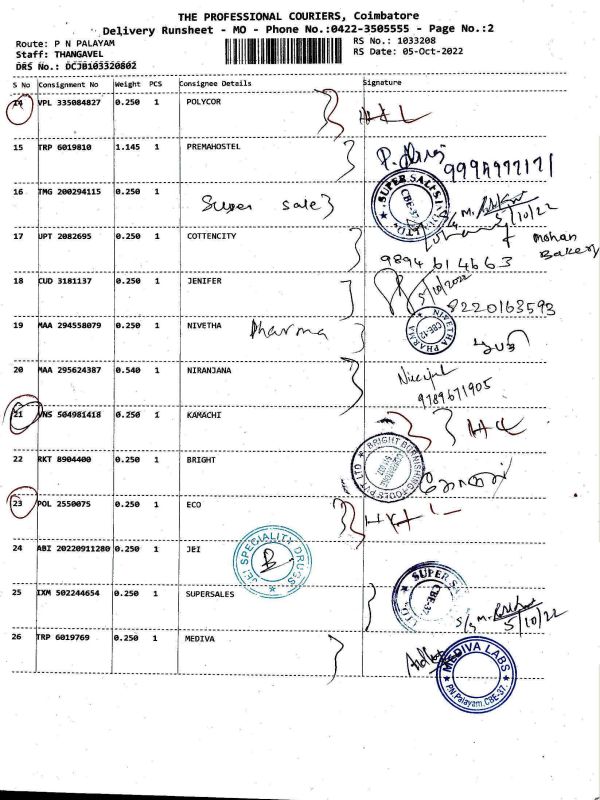 THE PROFESSIONAL COURIERS, Coimbatore
Delivery Runsheet - MO - Phone No.:0422-3505555 - Page No.:2
Route: P N PALAYAM
RS No.: 1033208
Staff: THANGAVEL
RS Date: 05-Oct-2022
DRS No.: DCJB103320802
S No Consignment No Weight PCS Consignee Details Signature
14 VPL 335084827 0.250 1 POLYCOR
15 TRP 6019810 1.145 1 PREMAHOSTEL
9994997171
16 TMG 200294115 0.250 1 Super sales
SUPER SALES CBE-37 5/10/22
17 UPT 2082695 0.250 1 COTTENCITY
mohan Bakery
9894614663
18 CUD 3181137 0.250 1 JENIFER
5/10/2022
8220163593
19 MAA 294558079 0.250 1 NIVETHA Pharma
NIVETHA PHARMA CBE-12
20 MAA 295624387 0.540 1 NIRANJANA
9789671905
21 VNS 504981418 0.250 1 KAMACHI
22 RKT 8904400 0.250 1 BRIGHT
BRIGHT BURNISHING TOOLS PVT LTD
23 POL 2550075 0.250 1 ECO
24 ABI 20220911280 0.250 1 JEI
JEI SPECIALITY DRUGS
25 IXM 502244654 0.250 1 SUPERSALES
SUPER SA CBE-37
5/10/22
26 TRP 6019769 0.250 1 MEDIVA
MEDIVA LABS PN.Palayam.CBE-37.